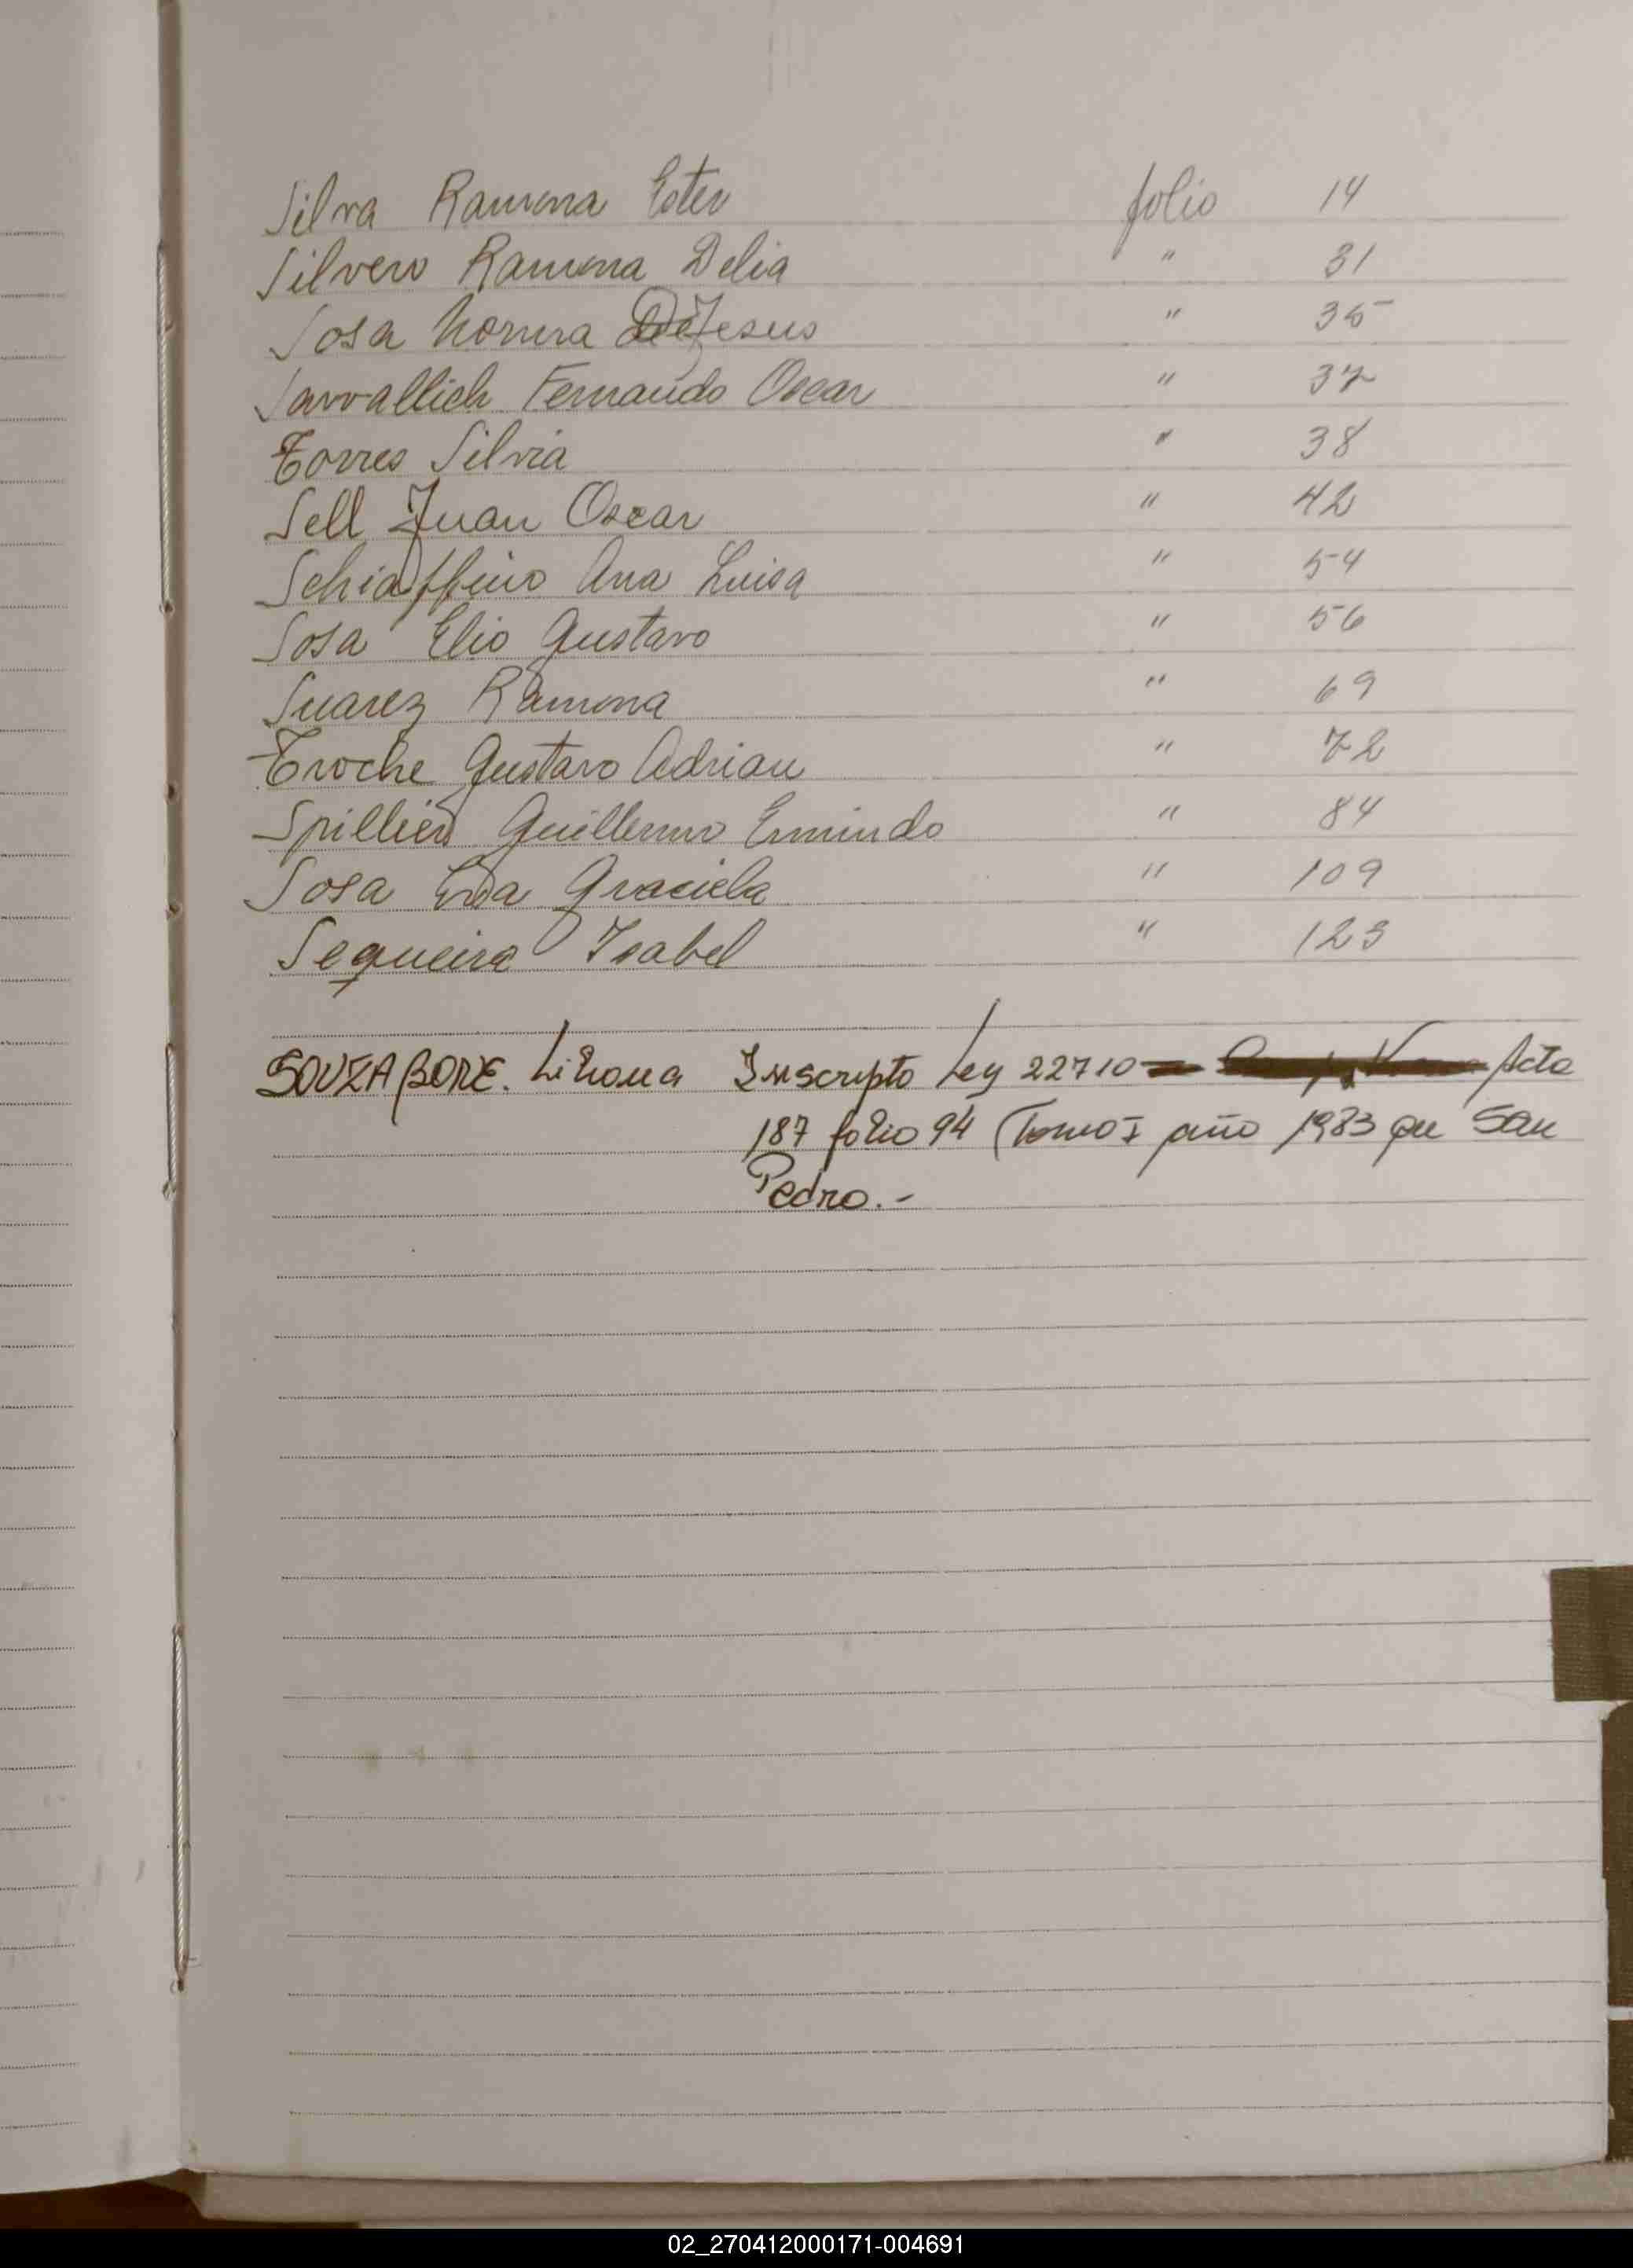 Silva Ramona Ester folio 14
Silvero Ramona Delia " 31
Sosa Norma De Jesus " 35
Savvallich Fernando Oscar " 37
Torres Silvia " 38
Sell Juan Oscar " 42
Schiaffino Ana Luisa " 54
Sosa Elio Gustavo " 56
Suarez Ramona " 69
Troche Gustavo Adrian " 72
Spillier Guillermo Ermindo " 84
Sosa Graciela " 109
Sequeira Isabel " 123
SOUZA BORE. Liliana Inscripto Ley 22710 Acta
187 folio 94 Tomo I año 1983 en San
Pedro.-
02_270412000171-004691